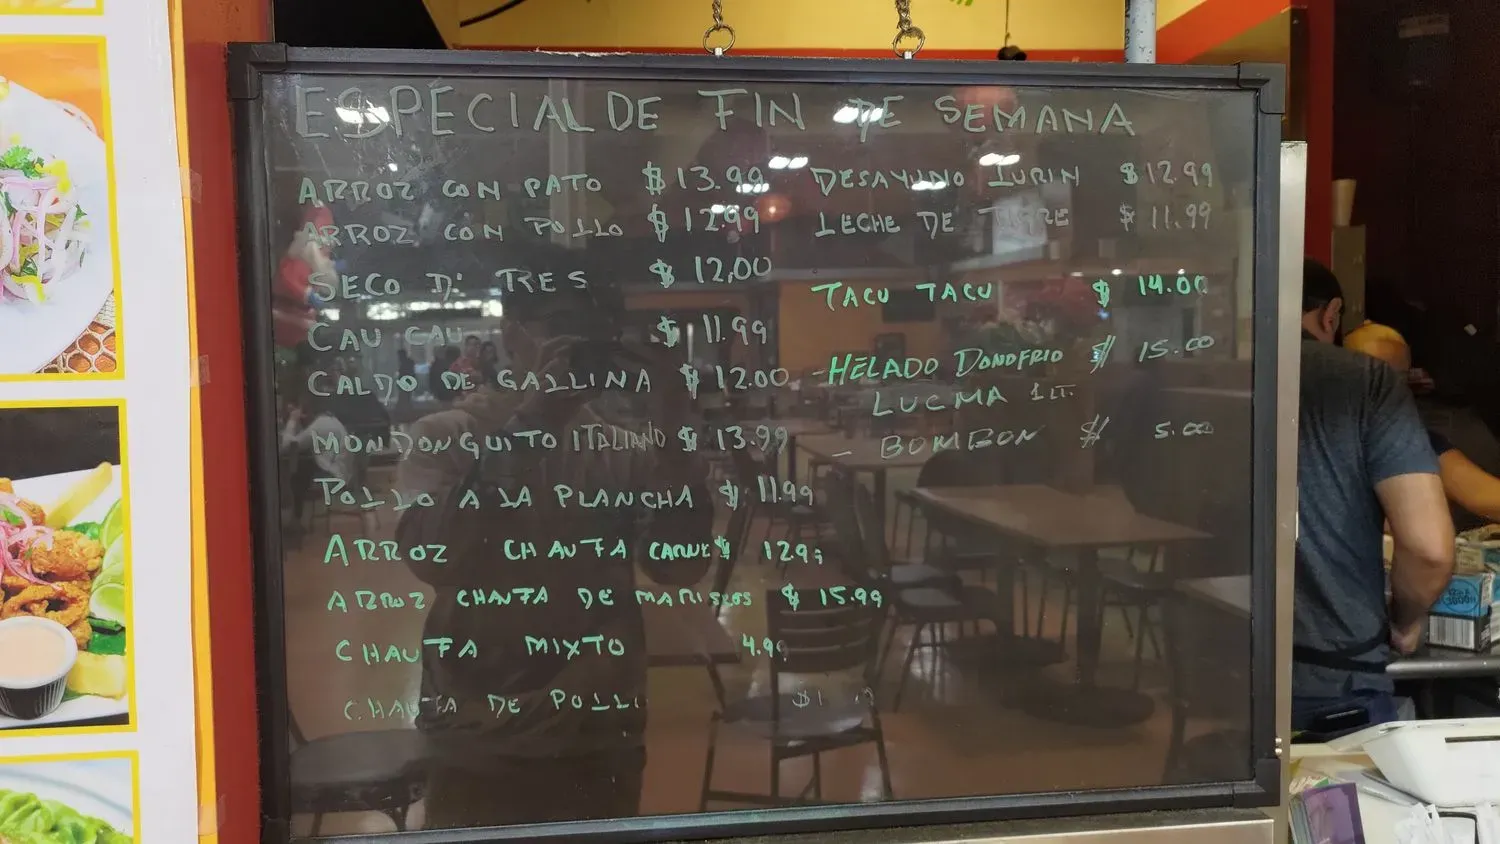 ESPECIAL DE FIN DE SEMANA
ARROZ CON PATO $13.99
ARROZ CON POLLO $12.99
SECO D' TRES $12,00
CAU CAU $11.99
CALDO DE GALLINA $12.00
MONDONGUITO ITALIANO $13.99
POLLO A LA PLANCHA $11.99
ARROZ CHAUFA CARNE $ 129
ARROZ CHAUFA DE MARISCOS $15.99
CHAUFA MIXTO 4.99
CHAUFA DE
DESAYUNO LURIN $12.99
LECHE DE TIGRE $11.99
TACU TACU $14.00
-HELADO DONOFRIO $15.00
LUCMA 1LT.
- BOMBON $5.00